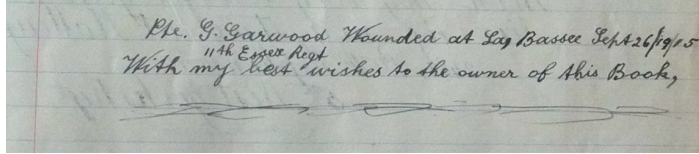 Pte. G. Garwood Wounded at Lag Bassee Sept 26/19/15
11th Essex Regt
With my best wishes to the owner of this Book,